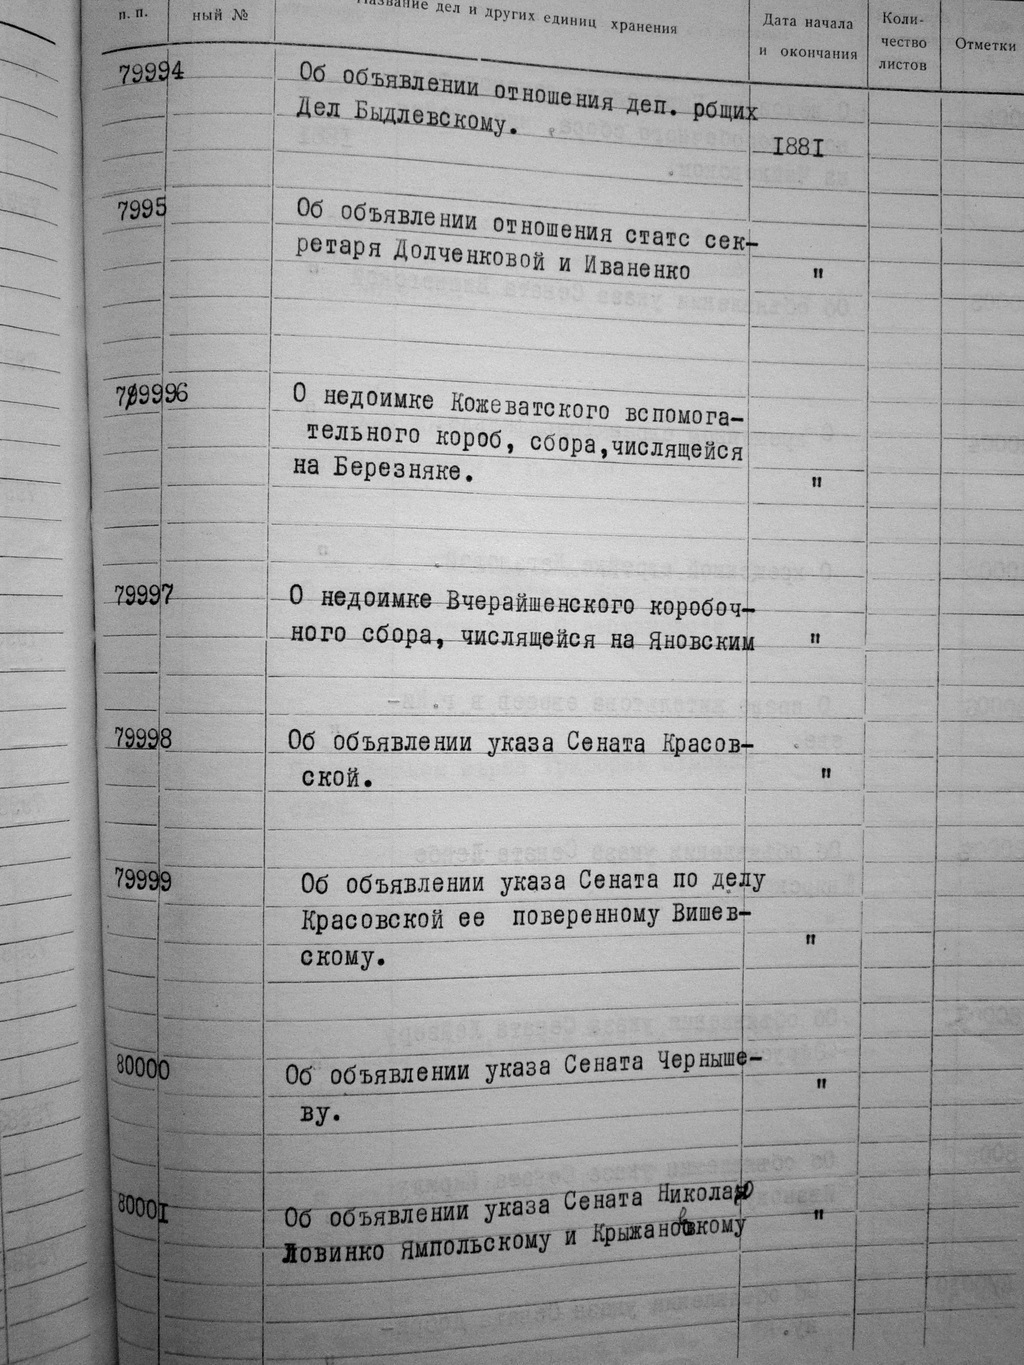 п. п.
ный №
Название дел и других единиц хранения
Дата начала
и окончания
Коли-
чество
листов
Отметки
79994
Об объявлении отношения деп. рбщих
Дел Быдлевскому.
1881
7995
Об объявлении отношения статс сек-
ретаря Долченковой и Иваненко "
79996
О недоимке Кожеватского вспомога-
тельного короб, сбора,числящейся
на Березняке. "
79997
О недоимке Вчерайшенского коробоч-
ного сбора, числящейся на Яновским "
79998
Об объявлении указа Сената Красов-
ской. "
79999
Об объявлении указа Сената по делу
Красовской ее поверенному Вишев-
скому. "
80000
Об объявлении указа Сената Черныше-
ву. "
80001
Об объявлении указа Сената Николаю
Ловинко Ямпольскому и Крыжановкому "